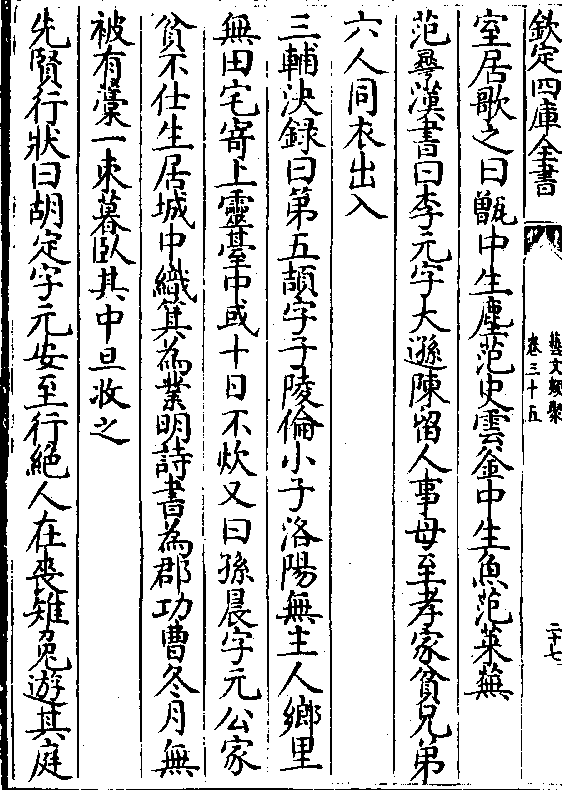 欽定四庫全書
藝文類聚
卷三十五
二十七
室居歌之曰甑中生塵范史雲釜中生魚范萊蕪
范曅漢書曰李元字大遜陳留人事母至孝家貧兄弟
六人同衣出入
三輔決録曰第五頡字子陵倫小子洛陽無主人鄉里
無田宅寄上靈臺中或十日不炊又曰孫晨字元公家
貧不仕生居城中織箕為業明詩書為郡功曹冬月無
被有藁一束暮臥其中旦收之
先賢行狀曰胡定字元安至行絕人在喪雉兔遊其庭